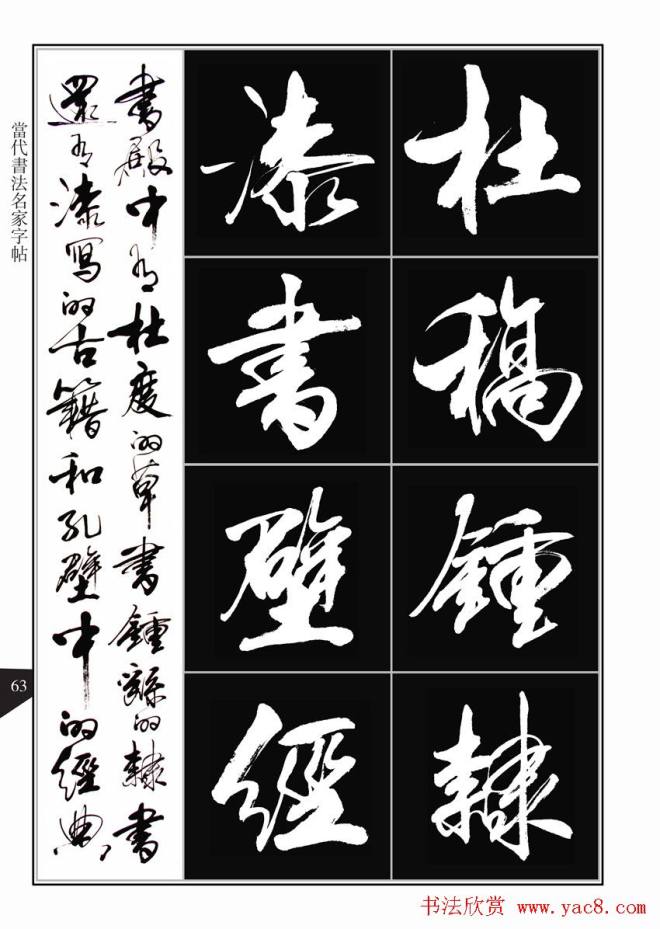 杜稿鍾隸
漆書壁經
書殿中有杜度的草書鍾繇的隸書
還有漆寫的古籍和孔壁中的經典
當代書法名家字帖
63
书法欣赏 www.yac8.com